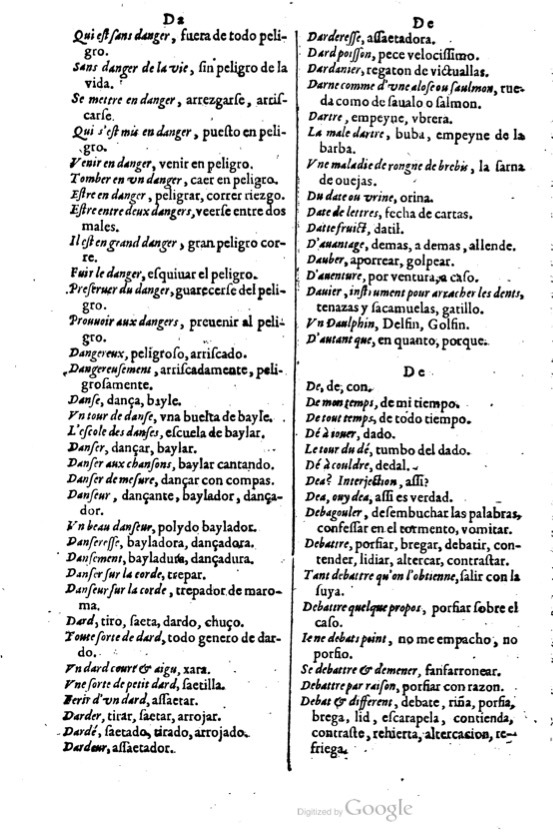 Da
Qui est sans danger, fuera de todo peli-
gro.
Sans danger de la vie, sin peligro de la
vida.
Se mettre en danger, arrezgarse, arris-
carse.
Qui s'est mis en danger, puesto en peli-
gro.
Venir en danger, venir en peligro.
Tomber en vn danger, caer en peligro.
Estre en danger, peligrar, correr riezgo.
Estre entre deux dangers, veerse entre dos
males.
Il est en grand danger, gran peligro cor-
re.
Fuir le danger, esquiuar el peligro.
Preseruer du danger, guarecerse del peli-
gro.
Prouuoir aux dangers, preuenir al peli-
gro.
Dangereux, peligroso, arriscado.
Dangereusement, arriscadamente, peli-
grosamente.
Danse, dança, bayle.
Vn tour de danse, vna buelta de bayle.
L'escole des danses, escuela de baylar.
Danser, dançar, baylar.
Danser aux chansons, baylar cantando.
Danser de mesure, dançar con compas.
Danseur, dançante, baylador, dança-
dor.
Vn beau danseur, polydo baylador.
Danseresse, bayladora, dançadora.
Dansement, bayladura, dançadura.
Danser sur la corde, trepar.
Danseur sur la corde, trepador de maro-
ma.
Dard, tiro, saeta, dardo, chuço.
Toute sorte de dard, todo genero de dar-
do.
Vn dard court & aigu, xara.
Vne sorte de petit dard, saetilla.
Ferir d'vn dard, assaetar.
Darder, tirar, saetar, arrojar.
Dardé, saetado, tirado, arrojado.
Dardeur, assaetador.
De
Darderesse, assaetadora.
Dard poisson, pece velocissimo.
Dardanier, regaton de victuallas.
Darne comme d'vne alose ou saulmon, rue-
da como de saualo o salmon.
Dartre, empeyne, vbrera.
La male dartre, buba, empeyne de la
barba.
Vne maladie de rongne de brebis, la sarna
de ouejas.
Du date ou vrine, orina.
Date de lettres, fecha de cartas.
Datte fruict, datil.
D'auantage, demas, a demas, allende.
Dauber, aporrear, golpear.
D'auenture, por ventura, a caso.
Dauier, instrument pour arracher les dents,
tenazas y sacamuelas, gatillo.
Vn Daulphin, Delfin, Golfin.
D'autant que, en quanto, porque.
De
De, de, con.
De mon temps, de mi tiempo.
De tout temps, de todo tiempo.
Dé à iouer, dado.
Le tour du dé, tumbo del dado.
Dé à couldre, dedal.
Dea? Interjection, assi?
Dea, ouy dea, assi es verdad.
Debagouler, desembuchar las palabras,
confessar en el tormento, vomitar.
Debattre, porfiar, bregar, debatir, con-
tender, lidiar, altercar, contrastar.
Tant debattre qu'on l'obtienne, salir con la
suya.
Debattre quelque propos, porfiar sobre el
caso.
Ie ne debats point, no me empacho, no
porfio.
Se debattre & demener, fanfarronear.
Debattre par raison, porfiar con razon.
Debat & different, debate, riña, porfia,
brega, lid, escarapela, contienda,
contraste, rehierta, altercacion, re-
friega.
Digitized by Google